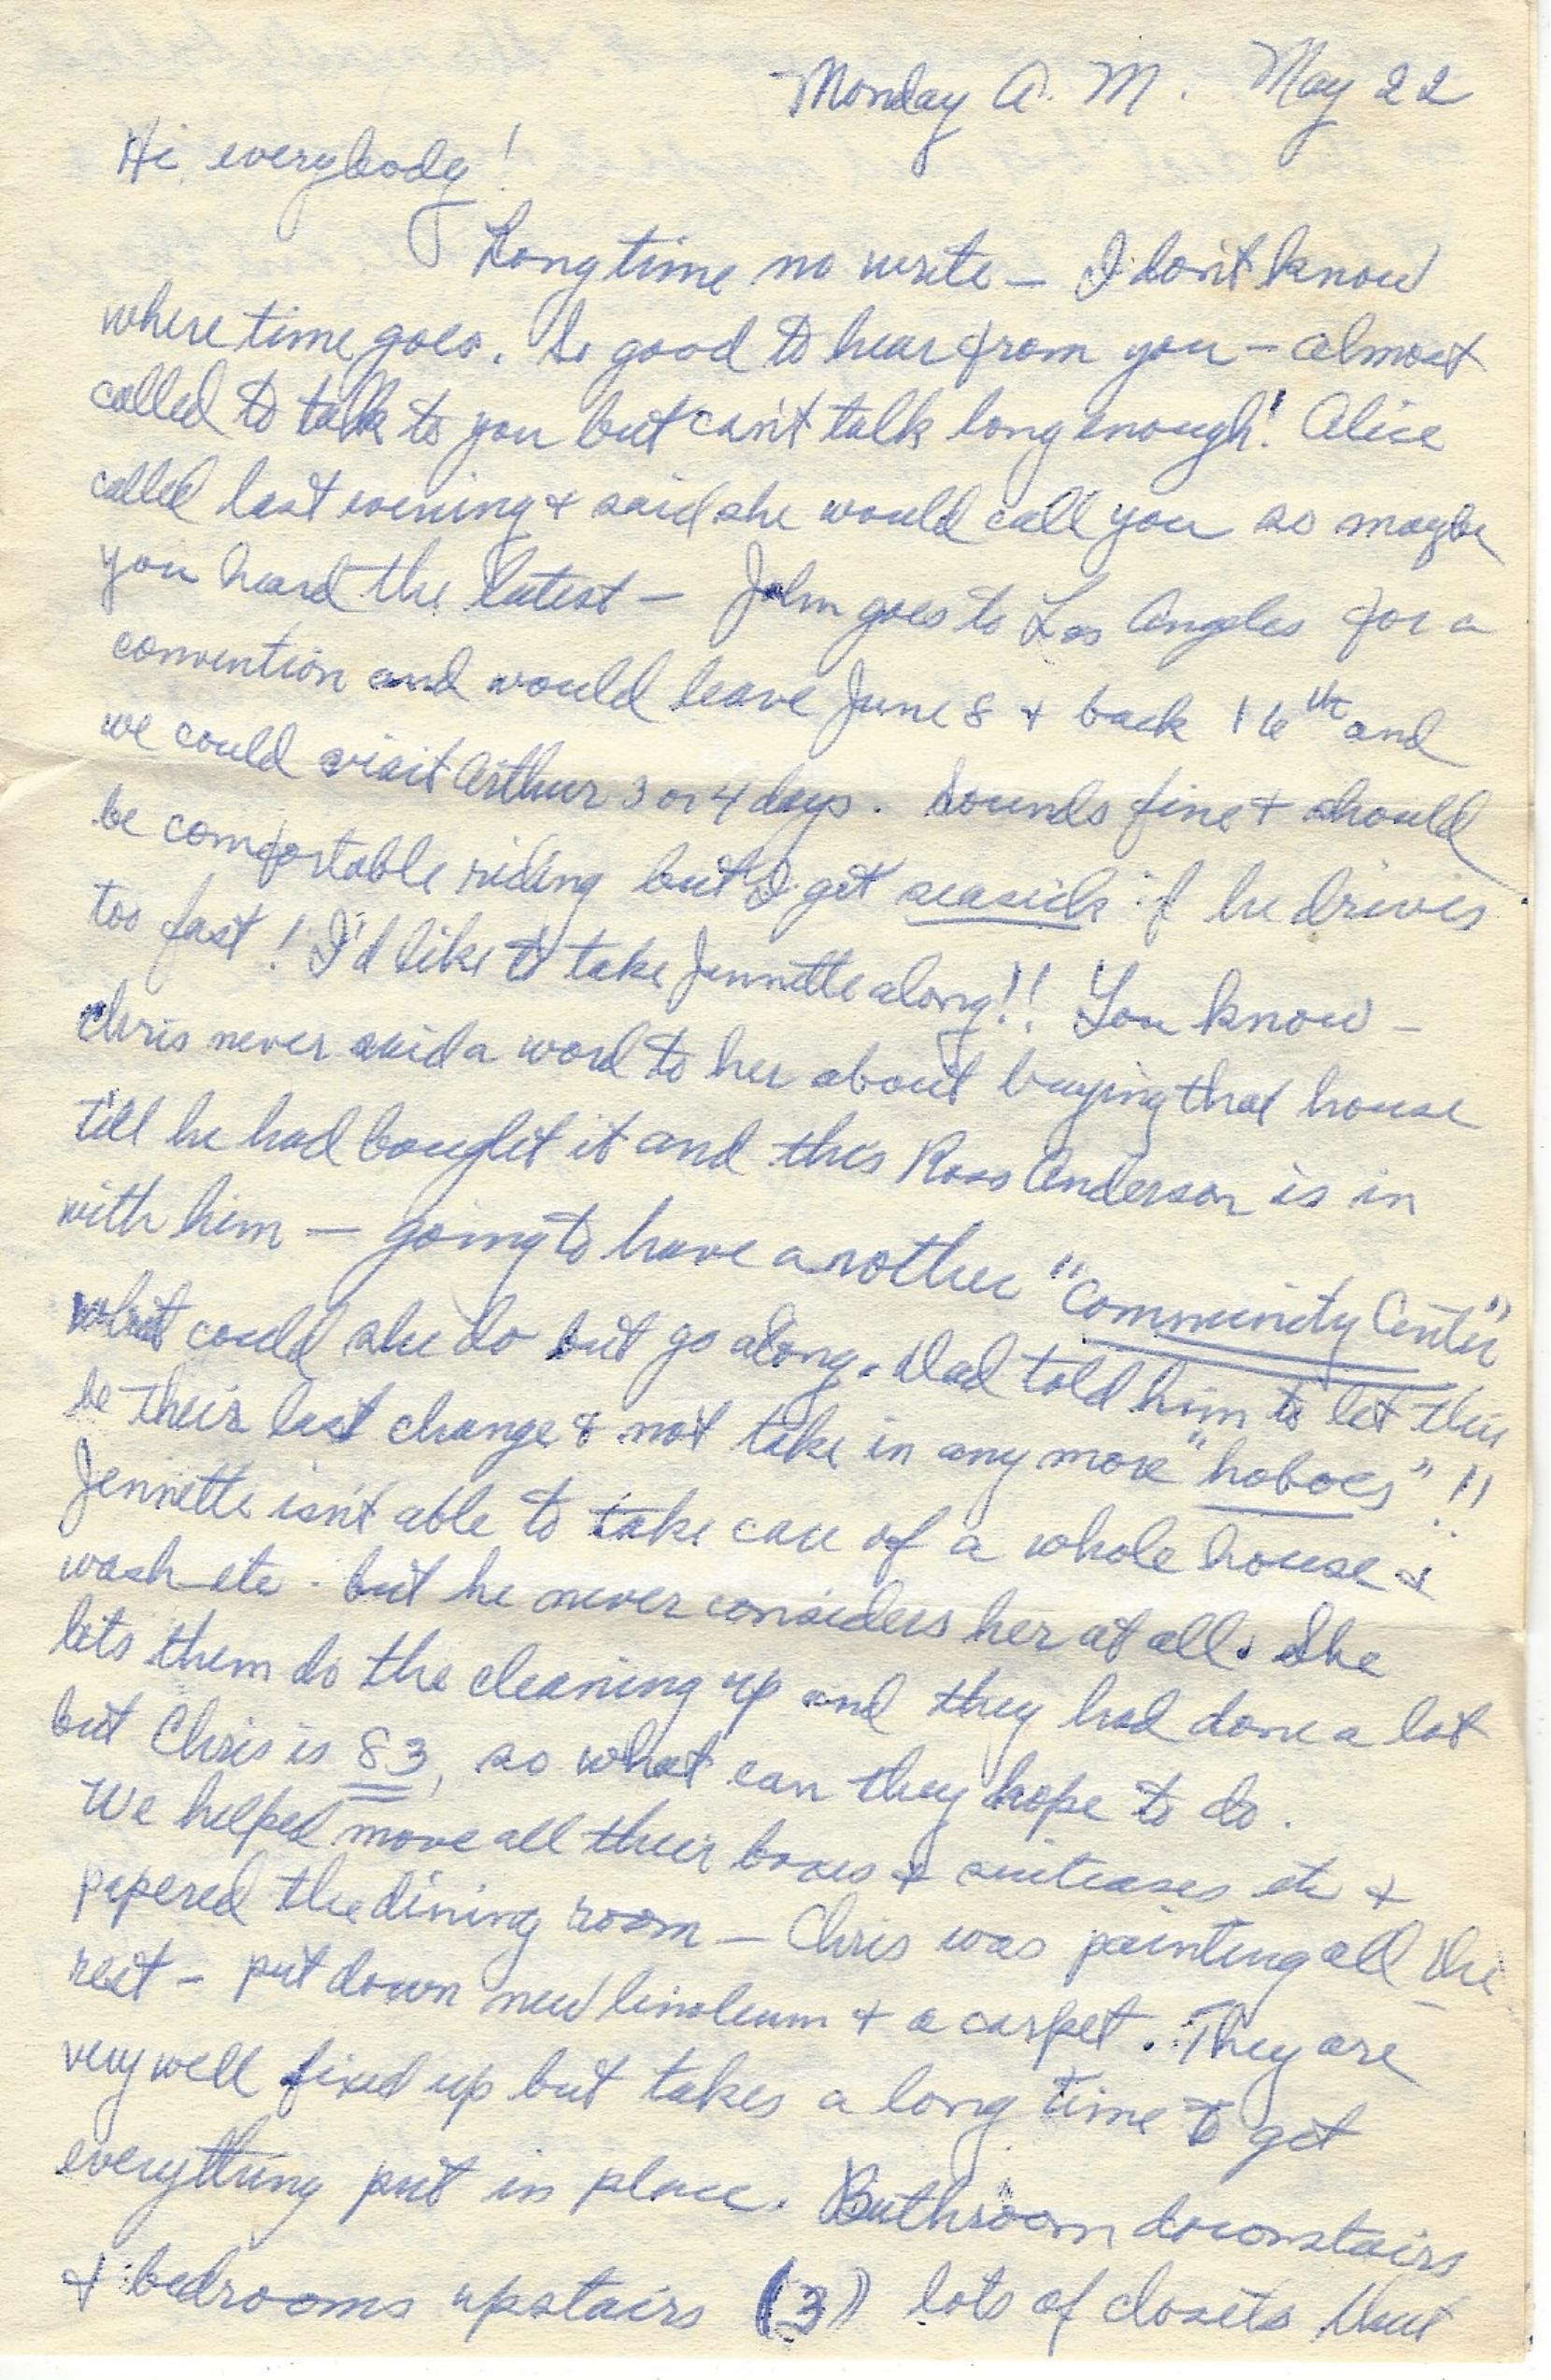 Monday A. M. May 22
Hi everybody!
Long time no write — I don't know
where time goes. So good to hear from you — almost
called to talk to you but can't talk long enough! Alice
called last evening & said she would call you so maybe
you heard the latest — John goes to Los Angeles for a
convention and would leave June 8 & back 16th and
we could visit Arthur 3 or 4 days. Sounds fine & should
be comfortable riding but I get seasick if he drives
too fast! I'd like to take Jennette along!! You know —
Chris never said a word to her about buying that house
till he had bought it and this Ross Anderson is in
with him — going to have another "Community Center"
what could she do but go along. Dad told him to let this
be their last change & not take in any more "hoboes"!!
Jennette isn't able to take care of a whole house &
wash etc. but he never considers her at all. She
lets them do the cleaning up and they had done a lot
but Chris is 83, so what can they hope to do.
We helped move all their boxes & suitcases etc &
papered the dining room — Chris was painting all the
rest — put down new linoleum & a carpet. They are
very well fixed up but takes a long time to get
everything put in place. Bathroom downstairs
& bedrooms upstairs (3) lots of closets that